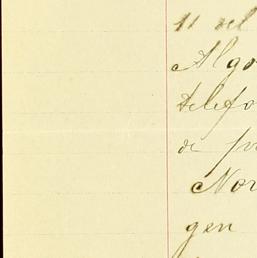 11 del
Algo
telefo
de pr
Nor
gen